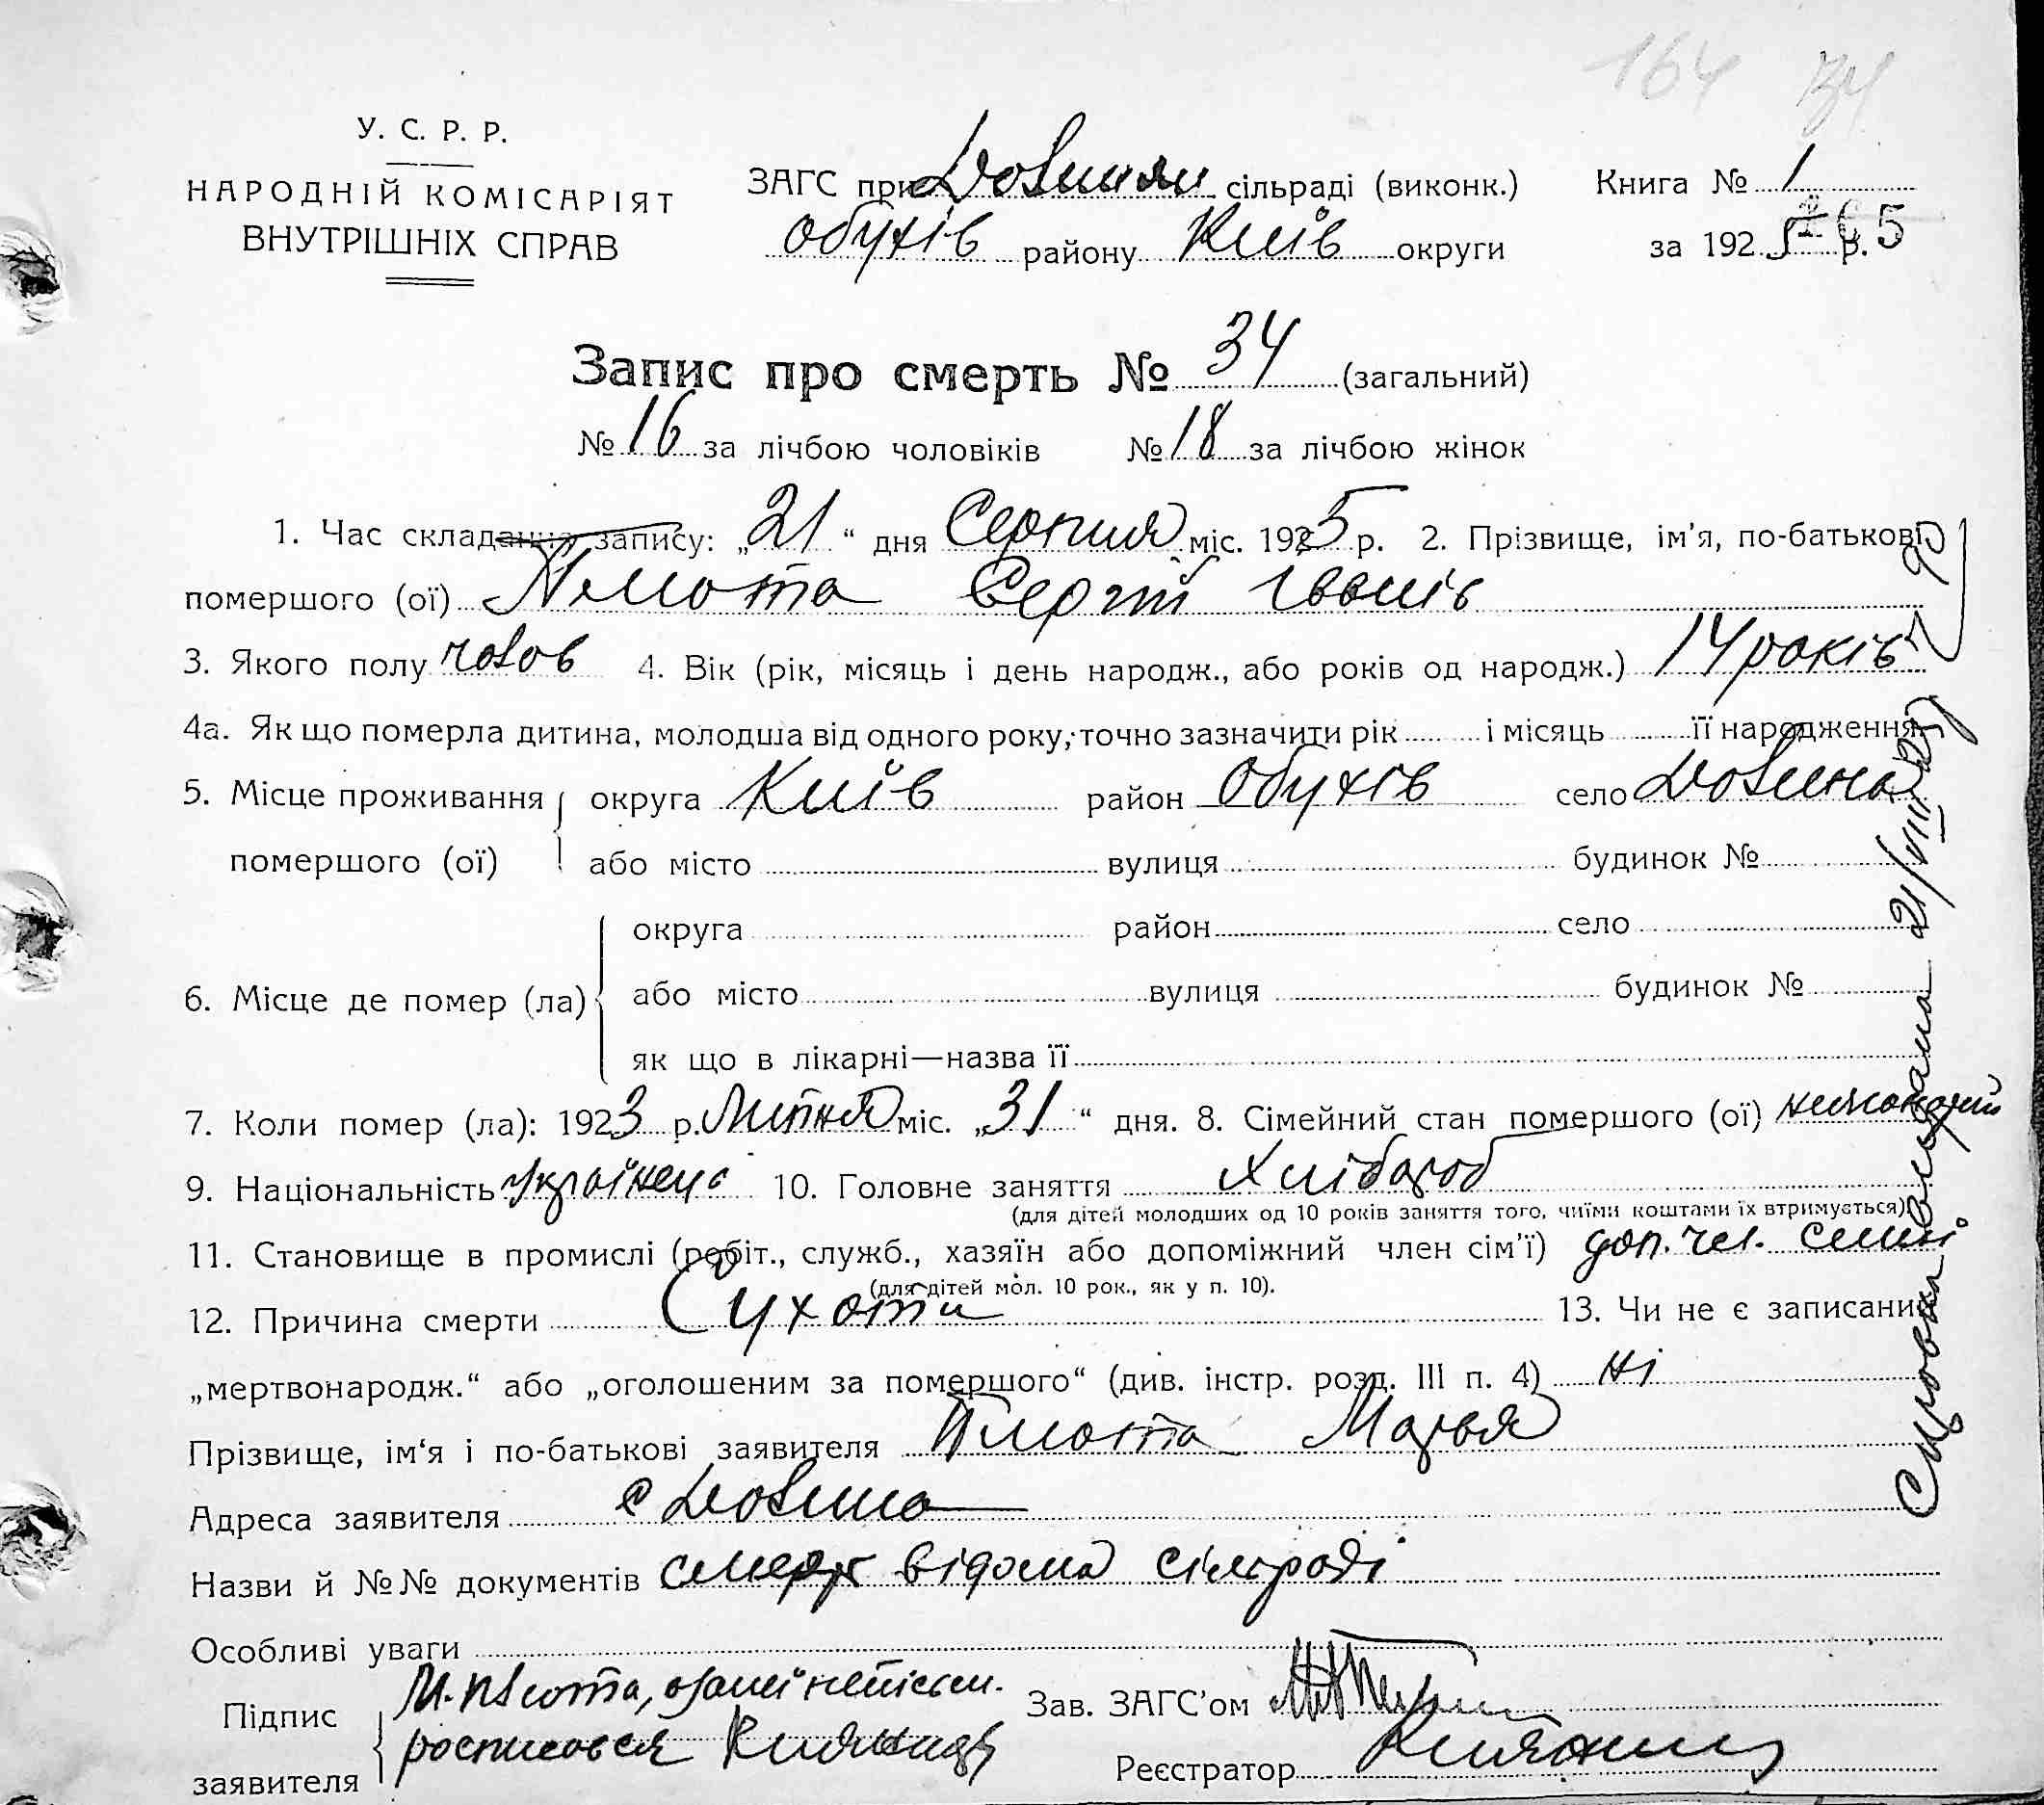 164
У. С. Р. Р.
НАРОДНІЙ КОМІСАРІЯТ
ВНУТРІШНІХ СПРАВ
ЗАГС при сільраді (виконк.)
Обухів району Київ округи
Книга № 1
за 1925 р.
Запис про смерть № 34 (загальний)
№ 16 за лічбою чоловіків № 18 за лічбою жінок
1. Час складання запису: „21“ дня Серпня міс. 1925 р. 2. Прізвище, ім’я, по-батькові
помершого (ої) Сергій Іванів
3. Якого полу чолов 4. Вік (рік, місяць і день народж., або років од народж.) 14 років
4а. Як що померла дитина, молодша від одного року, точно зазначити рік і місяць її народження
5. Місце проживання округа Київ район Обухів село Долина
помершого (ої) або місто вулиця будинок №
округа район село
6. Місце де помер (ла) або місто вулиця будинок №
як що в лікарні—назва її
7. Коли помер (ла): 1923 р. Липня міс. „31“ дня. 8. Сімейний стан помершого (ої) нежонатий
9. Національність Українець 10. Головне заняття Хлібороб
(для дітей молодших од 10 років заняття того, чиїми коштами їх втримується)
11. Становище в промислі (робіт., служб., хазяїн або допоміжний член сім’ї) доп. чл. семьї
(для дітей мол. 10 рок., як у п. 10).
12. Причина смерти Сухоти 13. Чи не є записаний
„мертвонародж.“ або „оголошеним за помершого“ (див. інстр. розд. III п. 4) ні
Прізвище, ім‘я і по-батькові заявителя Марья
Адреса заявителя с Долина
Назви й №№ документів смерть відома сільраді
Особливі уваги
Підпис
заявителя
Зав. ЗАГС’ом
Реєстратор
21/VIII 25 р